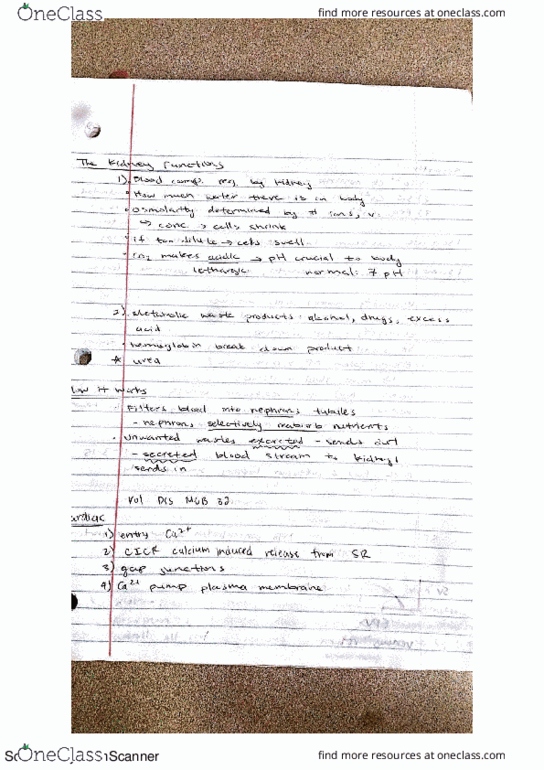 OneClass find more resources at oneclass.com
The Kidney Functions
1) Blood comp. reg. by kidney
• How much water there is in body
• osmolarity determined by # ions,
↳ conc → cells shrink
• if too dilute → cells swell
• CO2 makes acidic → pH crucial to body
lethargic normal: 7 pH
2) Metabolic waste products: alcohol, drugs, excess
acid
• hemoglobin break down product
* urea
How it works
• Filters blood into nephrons tubules
- nephrons selectively reabsorb nutrients
• unwanted wastes excreted - sends out
- secreted blood stream to kidneys
sends in
Vol Dis MCB 32
ardiac
1) entry Ca2+
2) CICR calcium induced release from SR
3) gap junctions
4) Ca2+ pump plasma membrane
OneClass Scanner find more resources at oneclass.com